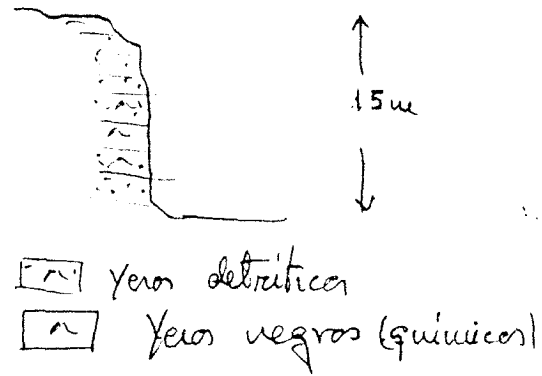 15m
Yesos detríticos
Yesos negros (químicos)